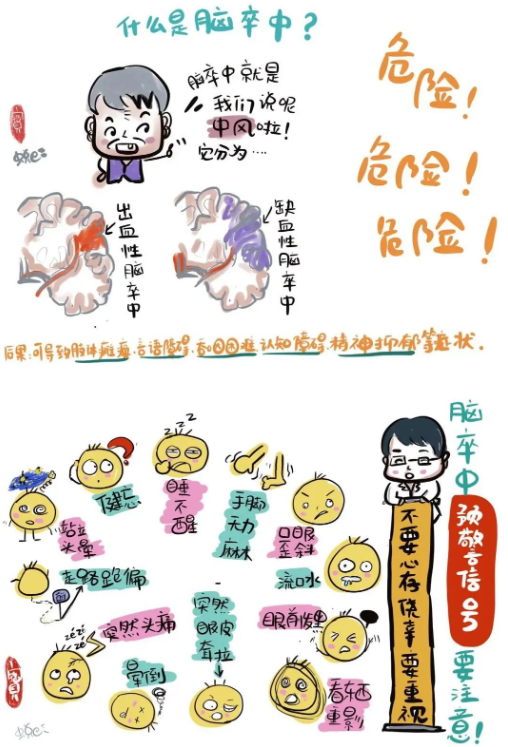 什么是脑卒中？
脑卒中就是
我们说呢
中风啦！
它分为…
危险！
危险！
危险！
出血性脑卒中
缺血性脑卒中
后果：可导致肢体瘫痪、言语障碍、吞咽困难、认知障碍、精神抑郁等症状.
脑卒中
预警信号
要注意！
不要心存侥幸要重视
zzzz
健忘
睡不醒
手脚无力麻木
口眼歪斜
站立头晕
走路跑偏
流口水
zézézé
突然头痛
突然眼皮耷拉
眼前发黑
晕倒
看东西重影